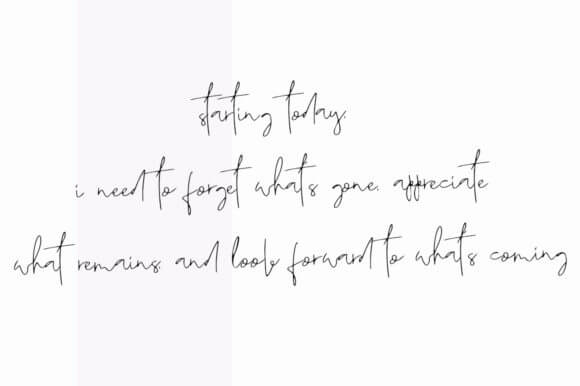 starting today,
i need to forget what's gone, appreciate
what remains and look forward to what's coming